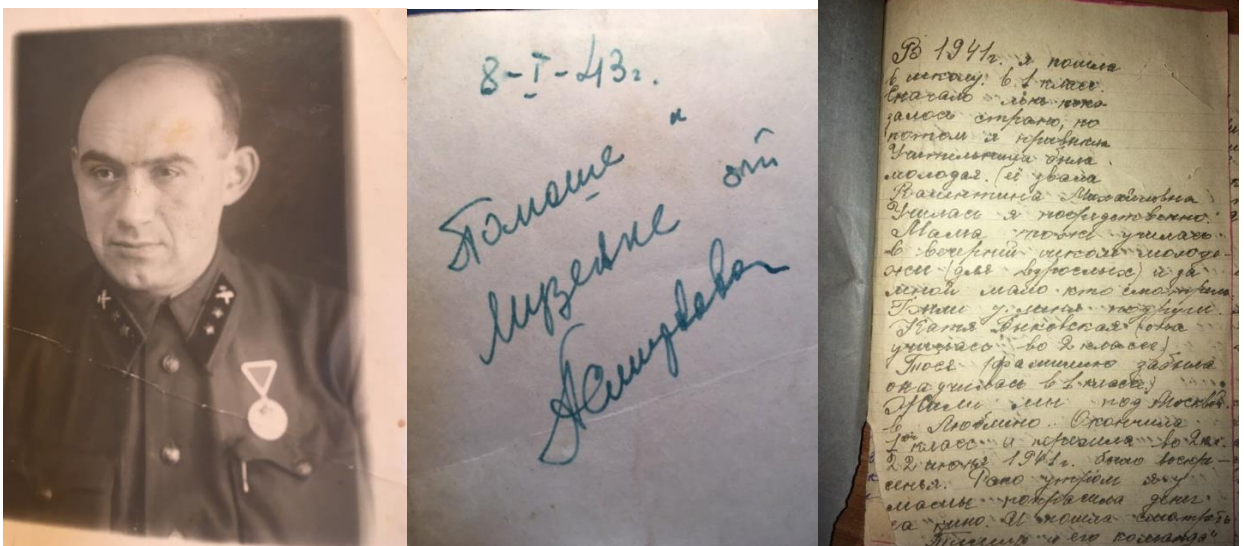 8-I-43г.
Томаше и
Лизеньке от
В 1941г. я пошла
в школу. в 1 класс.
Сначало мне пока-
залось страно, но
потом я привыкла
Учительница была
молодая. (её звали
Валентина Михайловна
Училась я посредственно.
Мама тоже училась
в вечерней школе молоде-
жи (для взрослых) и за
мной мало кто смотрел.
Были у меня подруги
Катя Быковская (она
училась во 2 классе)
Тося (фамилию забыла
она училась в 1 классе)
Жили мы под Москвой
в Люблино. Окончила
1ый класс и перешла во 2 кл.
22 июня 1941г. было воскре-
сенье. Рано утром я у
мамы попросила денег
на кино. И пошла смотреть
"Тимур и его команда"